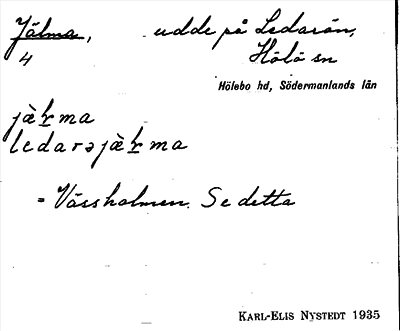 Jälma, udde på Ledarön,
4 Hölö sn
Hölebo hd, Södermanlands län
jàꞎma
ledarəjàꞎma
= Vässholmen. Se detta
KARL-ELIS NYSTEDT 1935